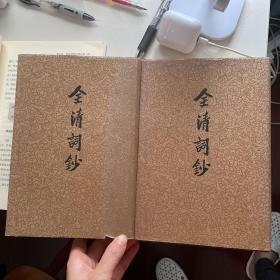 全清詞鈔
全清詞鈔